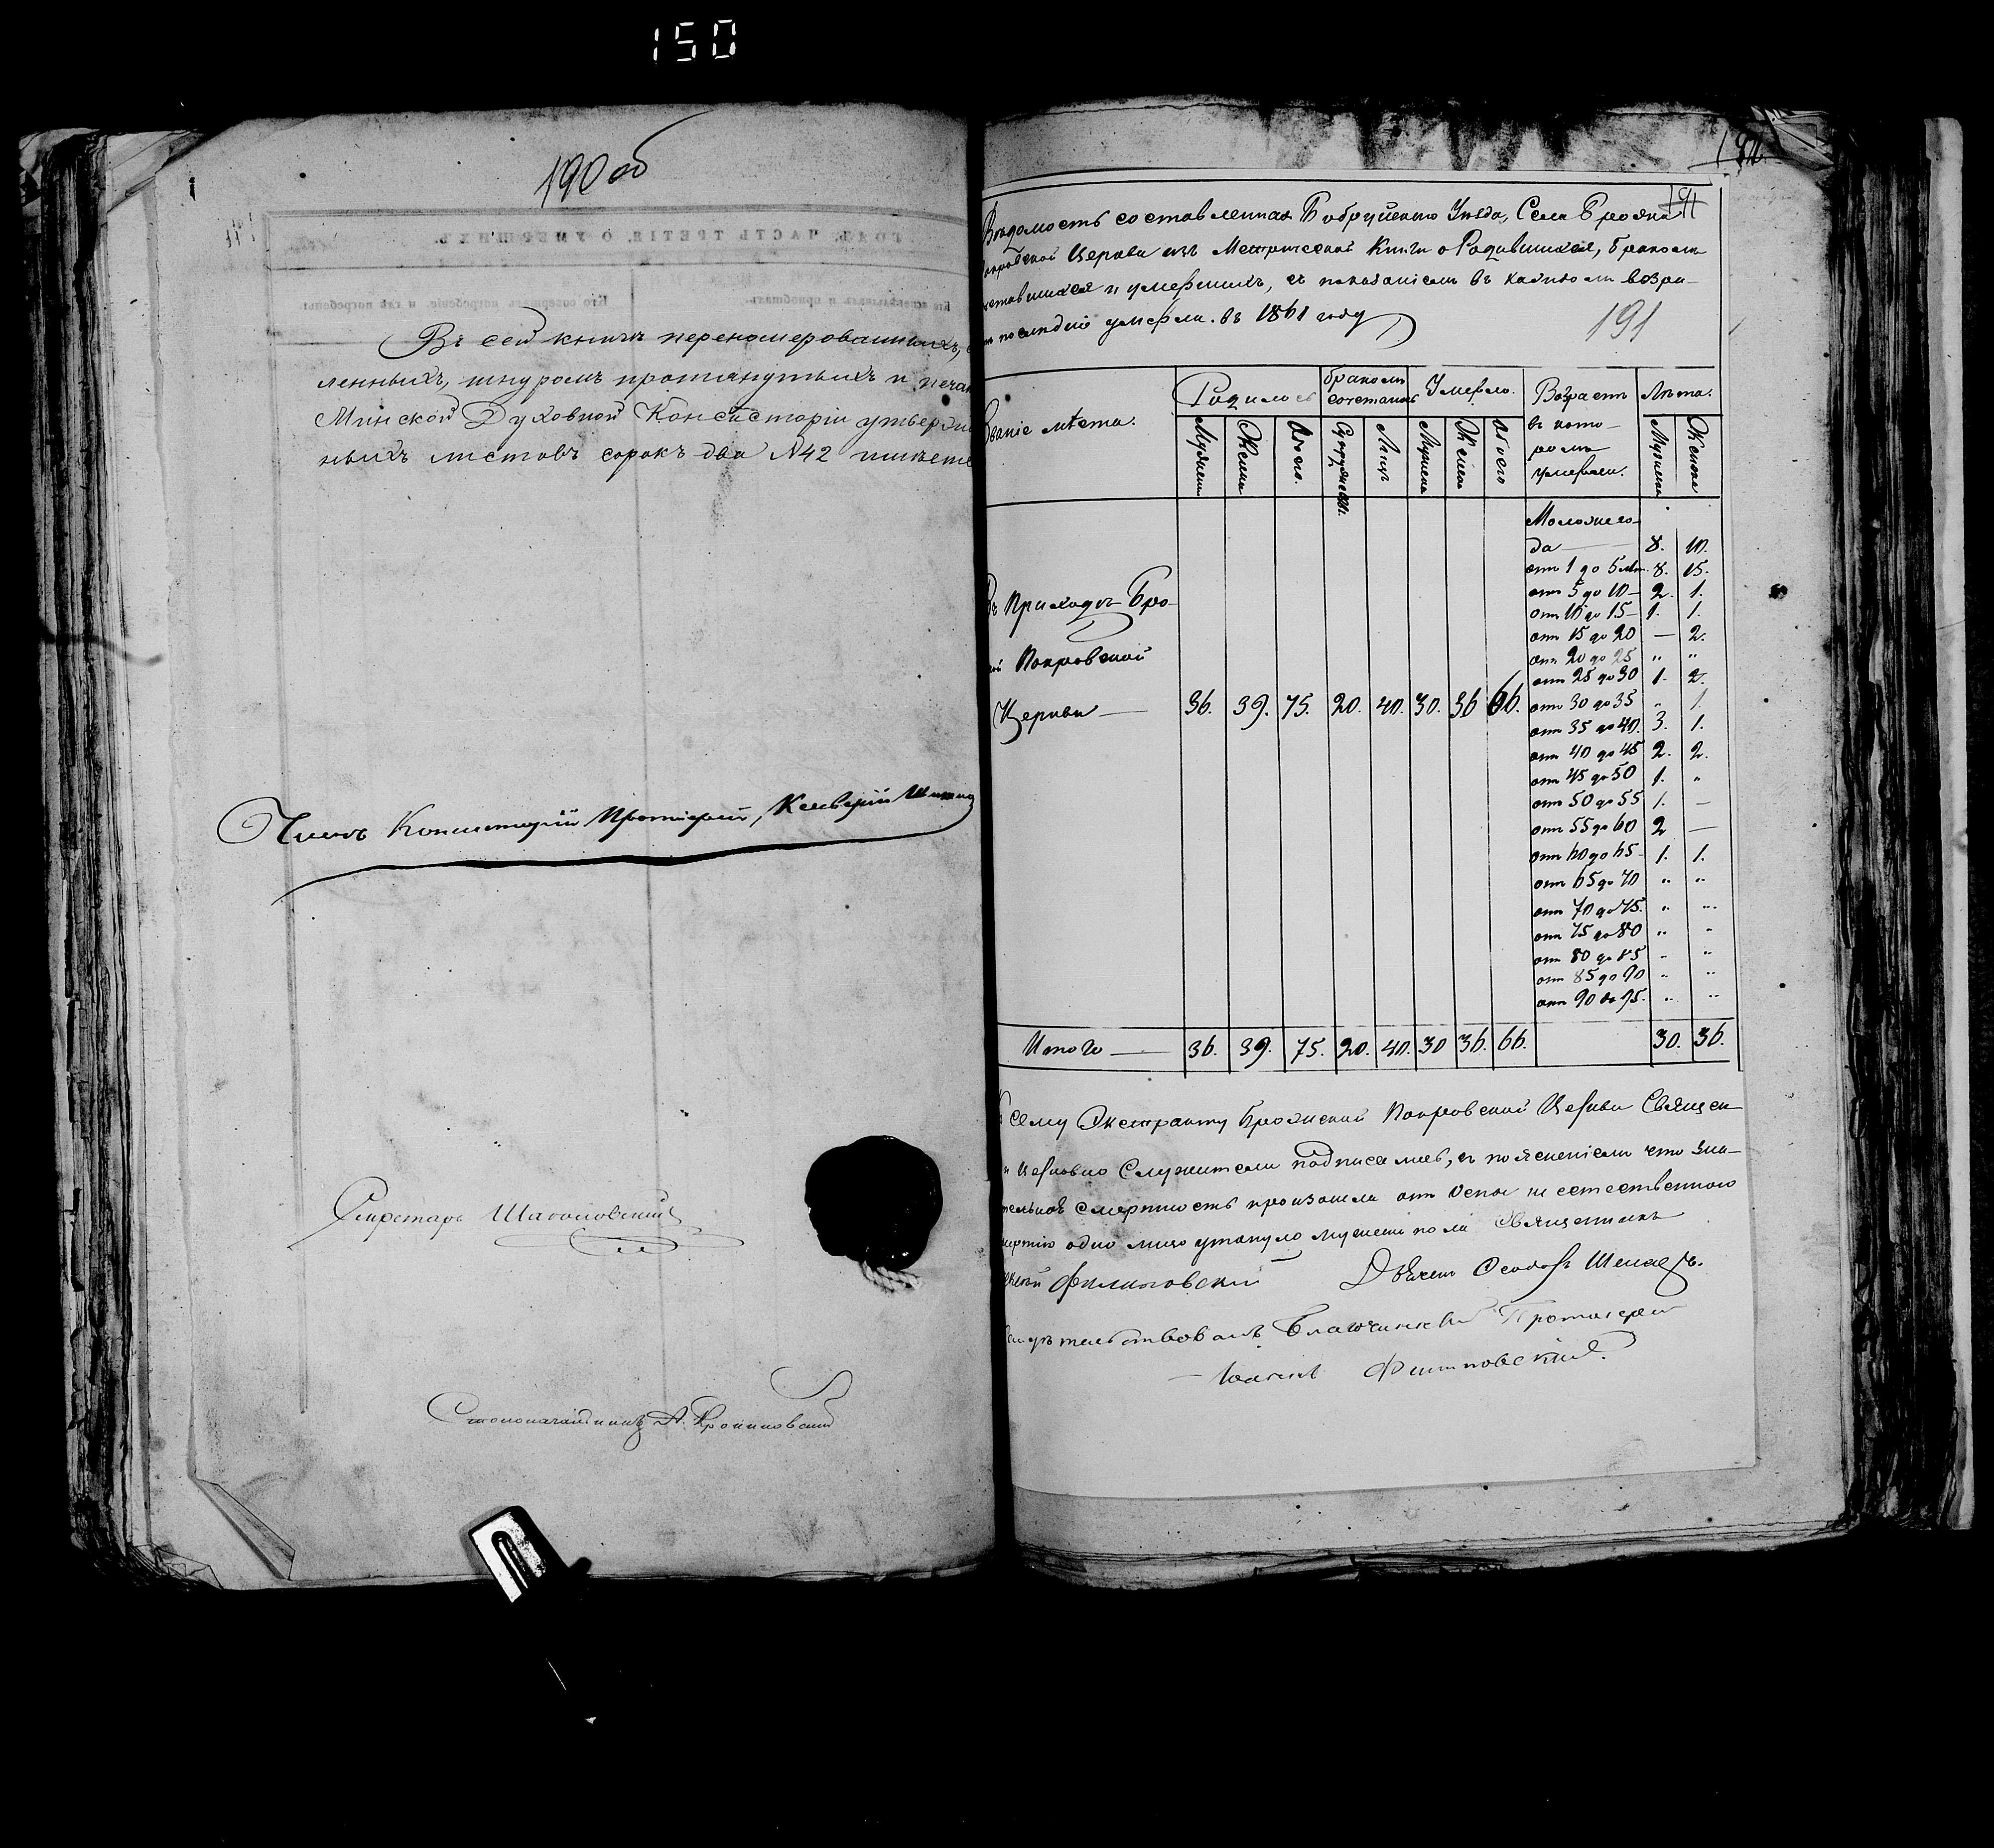 150
190 об
ГОДЪ, ЧАСТЬ ТРЕТІЯ, О УМЕРШИХЪ.
Въ сей книгѣ перенумерованныхъ,
ленныхъ, шнуромъ протянутыхъ и печа
Минской Духовной Консисторіи утвержд
ныхъ листовъ сорокъ два N42
Членъ Консисторіи Протоіерей,
Секретарь
Столоначальникъ А.
191
Вѣдомость составленная Бобруйскаго Уѣзда, Села Брожи
Церкви изъ Метрической Книги о Родившихся, бракомъ
и умершихъ, съ показаніемъ въ какихъ возра-
последніе умерли. въ 1861 году
191
Званіе мѣста.
Родилось
бракомъ сочеталось
Умерло.
Возрастъ въ кото-ромъ умерли.
Лѣта.
Мужеска Женска Обоего. Супружествъ. Лицъ Мужеска Женска Обоего Мужеска Женска
Моложе го-
да — 8. 10.
отъ 1 до 5 лѣт. 8. 15.
отъ 5 до 10 — 2. 1.
отъ 10 до 15 — 1. 1.
отъ 15 до 20 — 2.
отъ 20 до 25 " "
отъ 25 до 30 1. 2.
отъ 30 до 35 " 1.
отъ 35 до 40. 3. 1.
отъ 40 до 45 2. 2.
отъ 45 до 50 1. "
отъ 50 до 55 1. —
отъ 55 до 60 2 —
отъ 60 до 65 — 1. 1.
отъ 65 до 70 " "
отъ 70 до 75. " "
отъ 75 до 80 " "
отъ 80 до 85 " "
отъ 85 до 90 " "
отъ 90 до 95. " "
Въ Приходѣ Бро-
Покровской
Церкви — 36. 39. 75. 20. 40. 30. 36 66.
Итого — 36. 39. 75. 20. 40. 30 36. 66. 30. 36.
сему Экстракту Брожской Покровской Церкви Священ
и Церковно Служители подписались, съ поясненіемъ что зна-
тельная смертность произошла отъ Оспы не естественною
смертію одно лицо утонуло мужеска пола Священникъ
Филиповскій Дьячекъ Феодоръ
Свидѣтельствовалъ Благочинный Протоіерей
Іоаннъ Филиповскій.